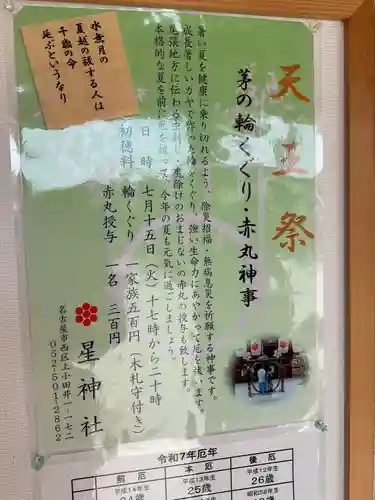 天王祭
茅の輪くぐり・赤丸神事
暑い夏を健康に乗り切れるよう、除災招福・無病息災を祈願する神事です。
成長著しいカヤで作った輪をくぐり、強い生命力にあやかって厄を祓います。
尾張地方に伝わる虫刺し・虫除けのおまじないの赤丸の授与も致します。
本格的な夏を前に厄を祓って、今年の夏も元気に過ごしましょう。
水無月の
夏越の祓する人は
千歳の命
延ぶというなり
日時 七月十五日(火)十七時から二十時
初穂料 輪くぐり 一家族五百円(木札守付き)
赤丸授与 一名 三百円
星神社
名古屋市西区上小田井一-一七二
052-501-2862
令和7年厄年
前厄 本厄 後厄
平成14年生 平成13年生 平成12年生
24歳 25歳 26歳
昭和58年生